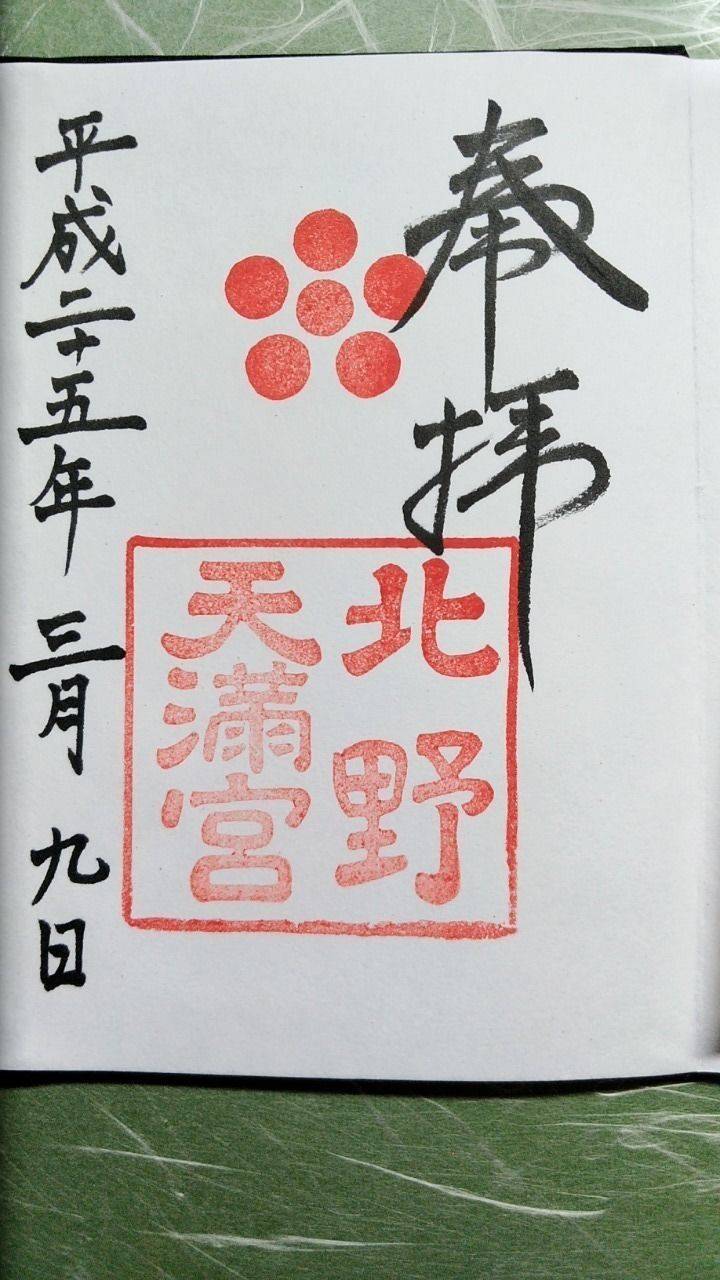 奉拝
北野
天満宮
平成二十五年 三月 九日